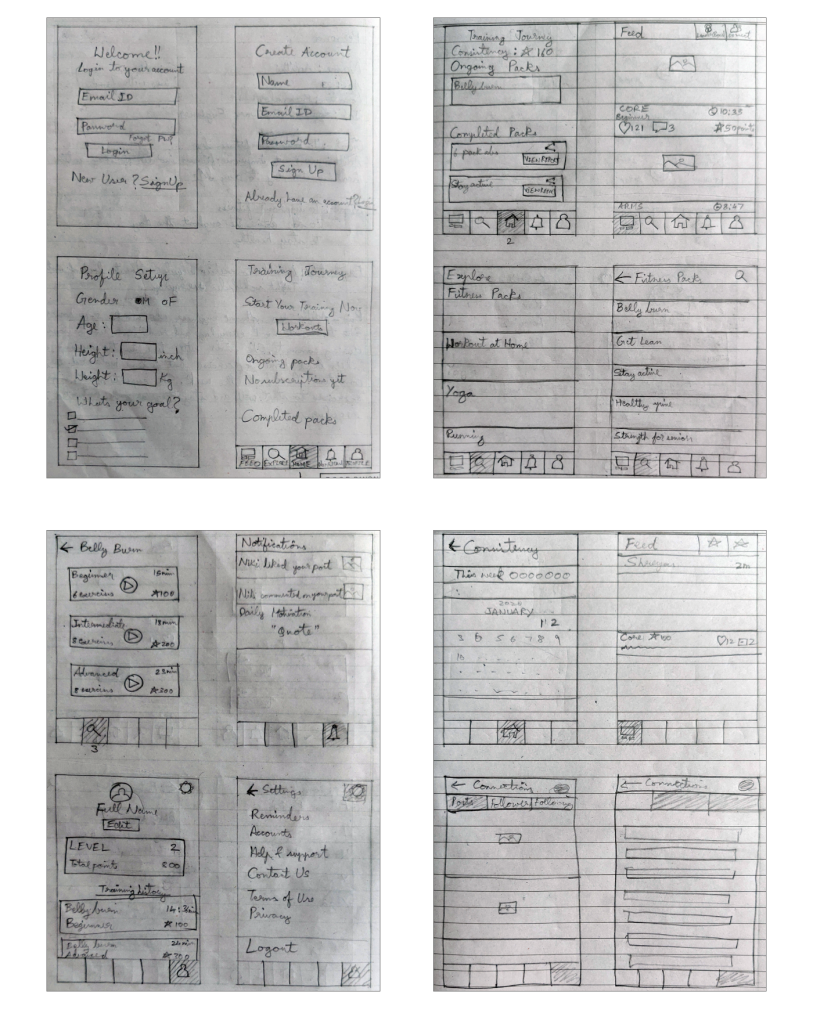 Welcome!!
Login to your account
Email ID
Password
Forgot
Login
New User? SignUp
Create Account
Name
Email ID
Password
Sign Up
Already have an account?
Profile Setup
Gender M F
Age:
Height: inch
Weight: Kg
Whats your goal?
Training Journey
Start Your Training Now
Workouts
Ongoing packs
No subscription yet
Completed packs
FEED EXPLORE HOME
Training Journey
Consistency: 160
Ongoing Packs
Belly burn
Completed Packs
6 pack abs
VIEW REPORT
Stay active
VIEW REPORT
2
Feed
CORE 10:33
Beginner
121 3 50 points
ARMS 8:47
Explore
Fitness Packs
Workout at Home
Yoga
Running
Fitness Packs
Belly burn
Get Lean
Stay active
Healthy spine
Strength for seniors
Belly Burn
Beginner 15min
6 exercises 100
Intermediate 18min
8 exercises 200
Advanced
8 exercises 300
3
Notifications
Niki liked your post
Niki commented on your post
Daily Motivation
"Quote"
Full Name
Edit
LEVEL 2
Total points 200
Training history
Belly burn
Beginner 100
Belly burn 24min
Advanced
Settings
Reminders
Accounts
Help & support
Contact Us
Terms of Use
Privacy
Logout
Consistency
This week
2020
JANUARY
1 2
3 5 6 7 8 9
10
Feed
2m
Core
12 2
Connections
Posts Followers Following
Connections